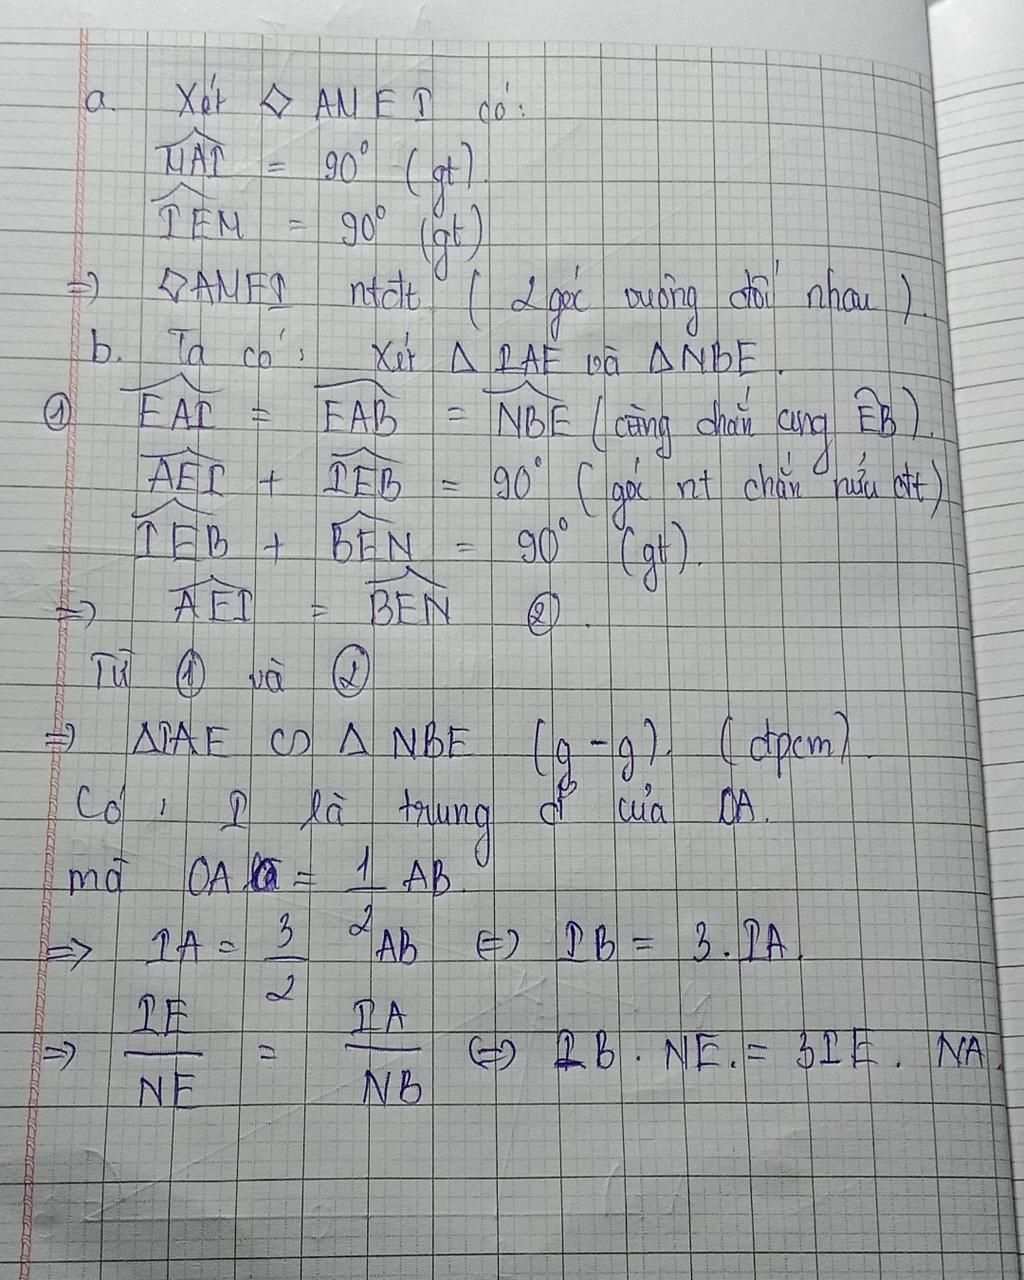 a. Xét ◇ AMEI có:
MAI = 90° (gt).
IEM = 90° (gt)
=> ◇AMEI ntđt (2 góc vuông đối nhau).
b. Ta có: Xét Δ IAE và ΔNBE.
① EAI = EAB = NBE (cùng chắn cung EB).
AEI + IEB = 90° (góc nt chắn nửu đtt)
IEB + BEN = 90° (gt).
=> AEI = BEN ②.
Từ ① và ②
=> ΔIAE ∽ Δ NBE (g-g). (đpcm).
Có: I là trung đ' của OA.
mà OA = 1/2 AB.
=> IA = 3/2 AB <=> IB = 3.IA.
=> IE/NE = IA/NB <=> IB . NE. = 3IE. NA.